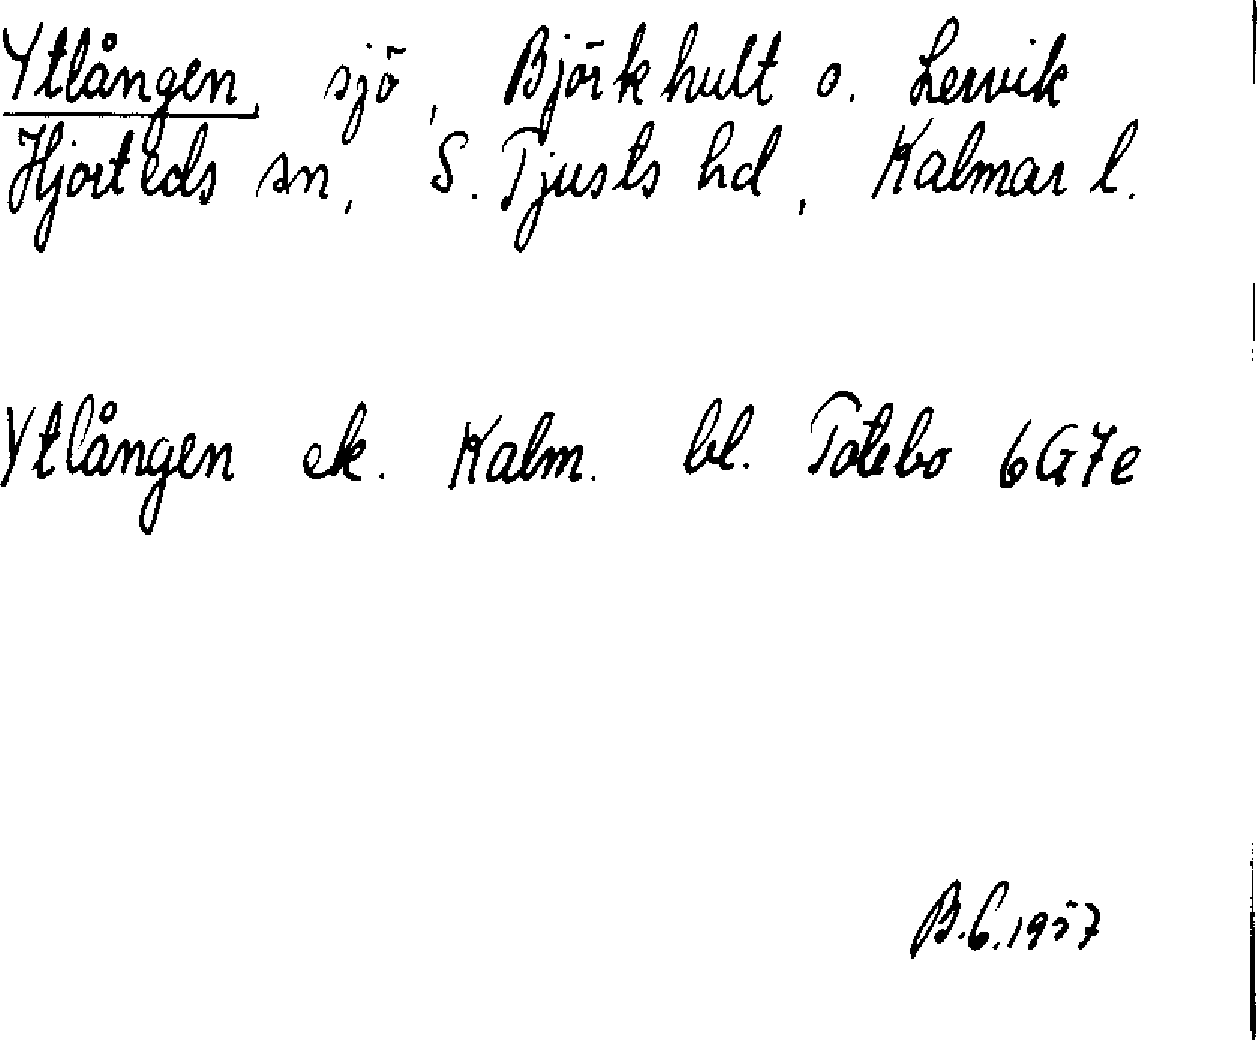 Ytlången, sjö, Björkhult o. Lervik
Hjorteds sn, S. Tjusts hd, Kalmar l.
Ytlången ek. Kalm. bl. Totebo 6G7e
B.G.1957